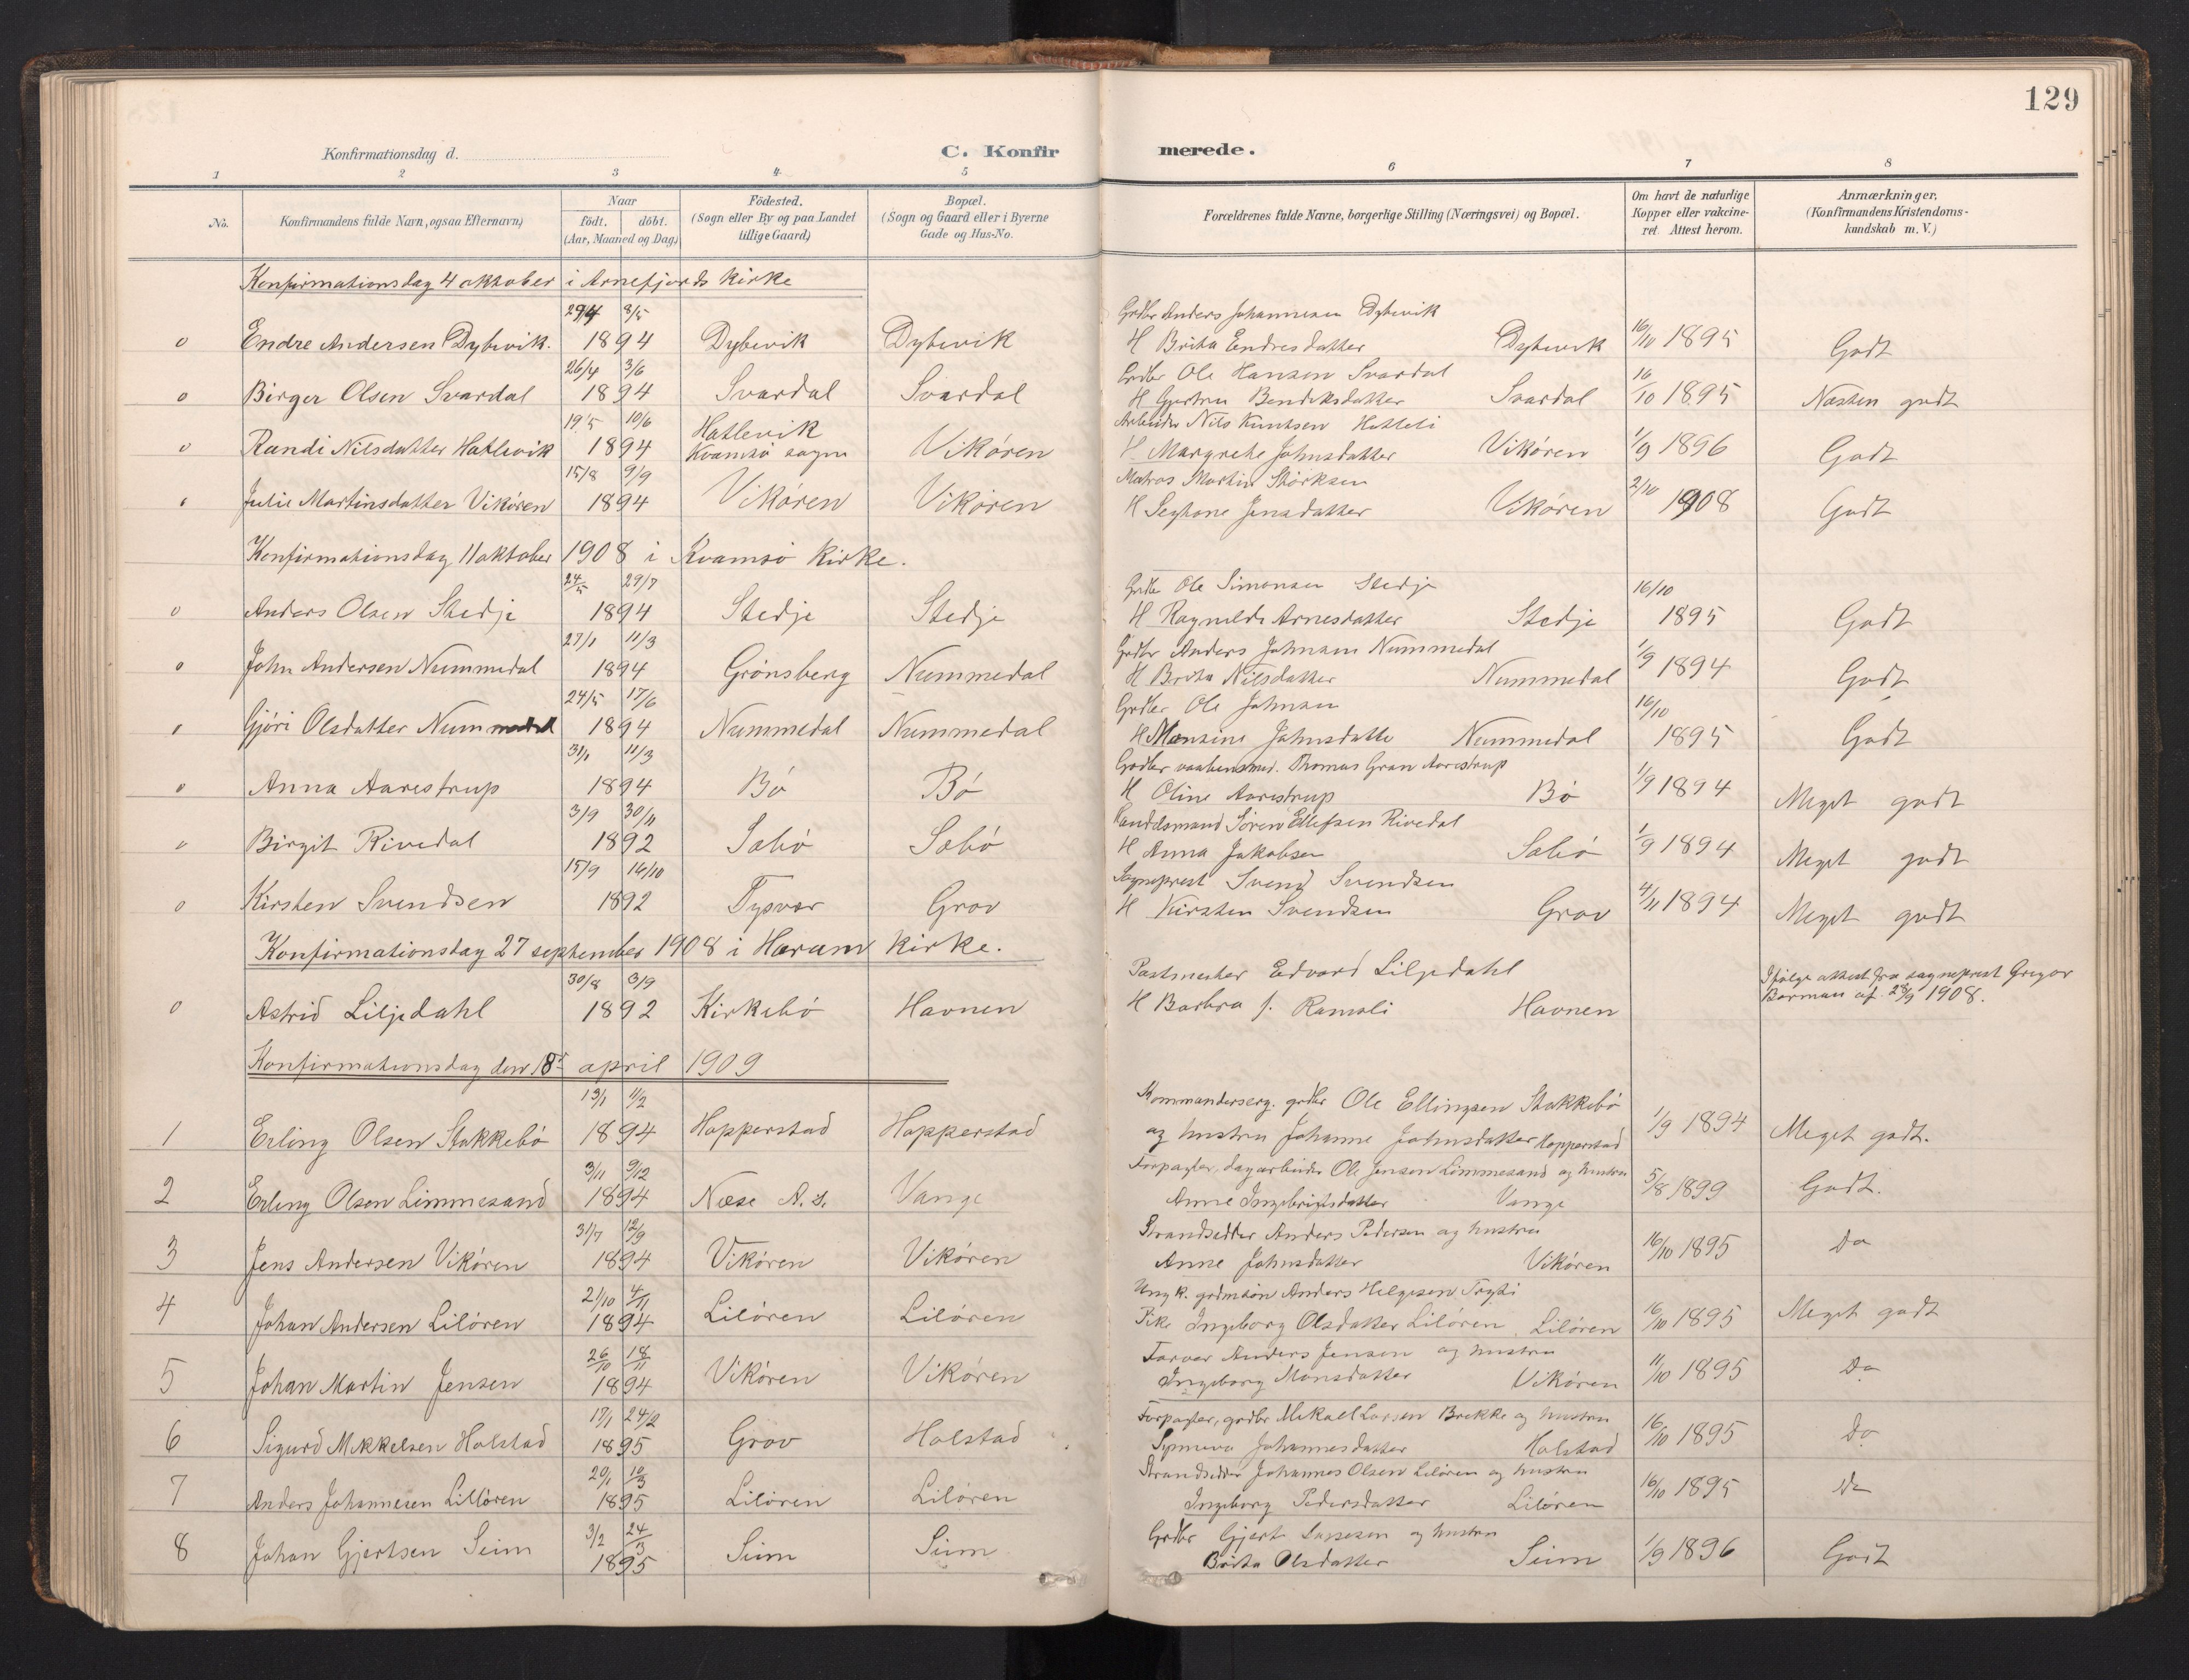 129
Konfirmationsdag d.
C. Konfirmerede.
1 2 3 4 5 6 7 8
No.
Konfirmandens fulde Navn, ogsaa Efternavn)
Naar
födt. döbt.
(Aar, Maaned og Dag)
Födested.
(Sogn eller By og paa Landet
tillige Gaard)
Bopæl.
(Sogn og Gaard eller i Byerne
Gade og Hus-No.
Forældrenes fulde Navne, borgerlige Stilling (Næringsvei) og Bopæl.
Om havt de naturlige
Kopper eller vakcine-
ret. Attest herom.
Anmærkninger,
(Konfirmandens Kristendoms-
kundskab m. V.)
Konfirmationsdag 4 oktober i Arnefjords kirke
29/4 8/5 Grdbr Anders Johannesen Dybevik
o Endre Andersen Dybevik. 1894 Dybevik Dybevik H Brita Endresdatter Dybevik 16/10 1895 Godt
26/4 3/6 Grdbr Ole Hansen Svardal
o Birger Olsen Svardal 1894 Svardal Svardal H Gjertru Bendiksdatter Svardal 16/10 1895 Næsten godt
19/5 10/6 Hatlevik Arbeider Nils Knutsen Hatleli
o Randi Nilsdatter Hatlevik 1894 Kvamsö sogn Vikören H Margrete Johnsdatter Vikören 1/9 1896 Godt
15/8 9/9 Matros Martin Störksen
Julie Martinsdatter Vikören 1894 Vikören Vikören H Jensdatter Vikören 2/10 1908 Godt
Konfirmationsdag 11 oktober 1908 i Kvamsö Kirke.
24/5 29/7 Grdbr Ole Simonsen Stedje
o Anders Olsen Stedje 1894 Stedje Stedje H Ragnilde Arnesdatter Stedje 16/10 1895 Godt
27/1 11/3 Grdbr Anders Johnsen Nummedal
o John Andersen Nummedal 1894 Grönsberg Nummedal H Brita Nilsdatter Nummedal 1/9 1894 Godt
24/5 17/6 Grdbr Ole Johnsen
Gjöri Olsdatter Nummedal 1894 Nummedal Nummedal H Monsine Johnsdatte Nummedal 16/10 1895 Godt
31/1 11/3 Grdbr vaabensmed. Thomas Gran Aarestrup
o Anna Aarestrup 1894 Bö Bö H Oline Aarestrup Bö 1/9 1894 Meget godt
3/9 30/11 Landdsmand Sören Ellefsen Rivedal
o Birgit Rivedal 1892 Säbö Säbö H Anna Jakobsen Säbö 1/9 1894 Meget godt
15/9 16/10 Sogneprest Svend Svendsen
o Kirsten Svendsen 1892 Tysvær Grov H Kirsten Svendsen Grov 4/11 1894 Meget godt
Konfirmationsdag 27 september 1908 i Haram kirke.
30/8 3/9 Postmester Edvard Liljedahl Ifölge attest fra sogneprest Gregor
o Astrid Liljedahl 1892 Kirkebö Havnen H Barbra f. Ramsli Havnen Borman af 28/9 1908.
Konfirmationsdag den 18de april 1909
13/1 11/2 Kommanderserg. grdbr Ole Ellingsen Stakkebö
1 Erling Olsen Stakkebö 1894 Hopperstad Hopperstad og hustru Johanne Johnsdatter Hopperstad 1/9 1894 Meget godt.
3/11 9/12 Forpagter, dagarbeider Ole Jensen Limmesand og hustru
2 Erling Olsen Limmesand 1894 Næse A.s. Vange Anne Ingebrigtsdatter Vange 5/8 1899 Godt.
31/7 12/9 Strandsidder Anders Pedersen og hustru
3 Jens Andersen Vikören 1894 Vikören Vikören Anne Johnsdatter Vikören 16/10 1895 Do
21/10 4/11 Ungk. grdmsön Anders Helgesen Tryti
4 Johan Andersen Lilören 1894 Lilören Lilören Pike Ingeborg Olsdatter Lilören Lilören 16/10 1895 Meget godt
26/10 18/11 Farver Anders Jensen og hustru
5 Johan Martin Jensen 1894 Vikören Vikören Ingeborg Monsdatter Vikören 11/10 1895 Do
17/1 24/2 Forpagter, grdbr Mikael Larsen Brekke og hustru
6 Sigurd Mikkelsen Holstad 1895 Grov Holstad Synneva Johannesdatter Holstad 16/10 1895 Do
20/1 10/3 Strandsidder Johannes Olsen Lilören og hustru
7 Anders Johannesen Lillören 1895 Lilören Lilören Ingeborg Pedersdatter Lilören 16/10 1895 Do
3/2 24/3 Grdbr Gjert Lassesen og hustru
8 Johan Gjertsen Seim 1895 Seim Seim Brita Olsdatter Seim 1/9 1896 Godt